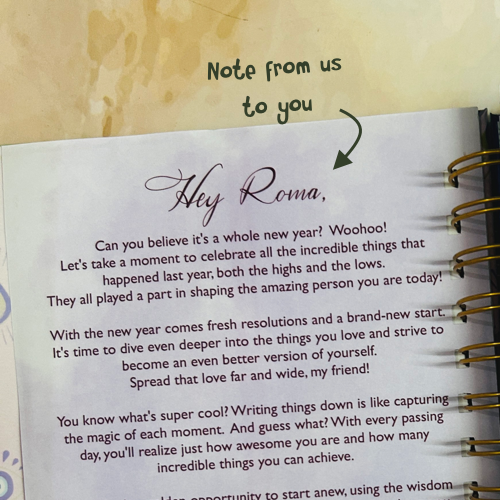 Note from us
to you
Hey Roma,
Can you believe it's a whole new year? Woohoo!
Let's take a moment to celebrate all the incredible things that
happened last year, both the highs and the lows.
They all played a part in shaping the amazing person you are today!
With the new year comes fresh resolutions and a brand-new start.
It's time to dive even deeper into the things you love and strive to
become an even better version of yourself.
Spread that love far and wide, my friend!
You know what's super cool? Writing things down is like capturing
the magic of each moment. And guess what? With every passing
day, you'll realize just how awesome you are and how many
incredible things you can achieve.
opportunity to start anew, using the wisdom